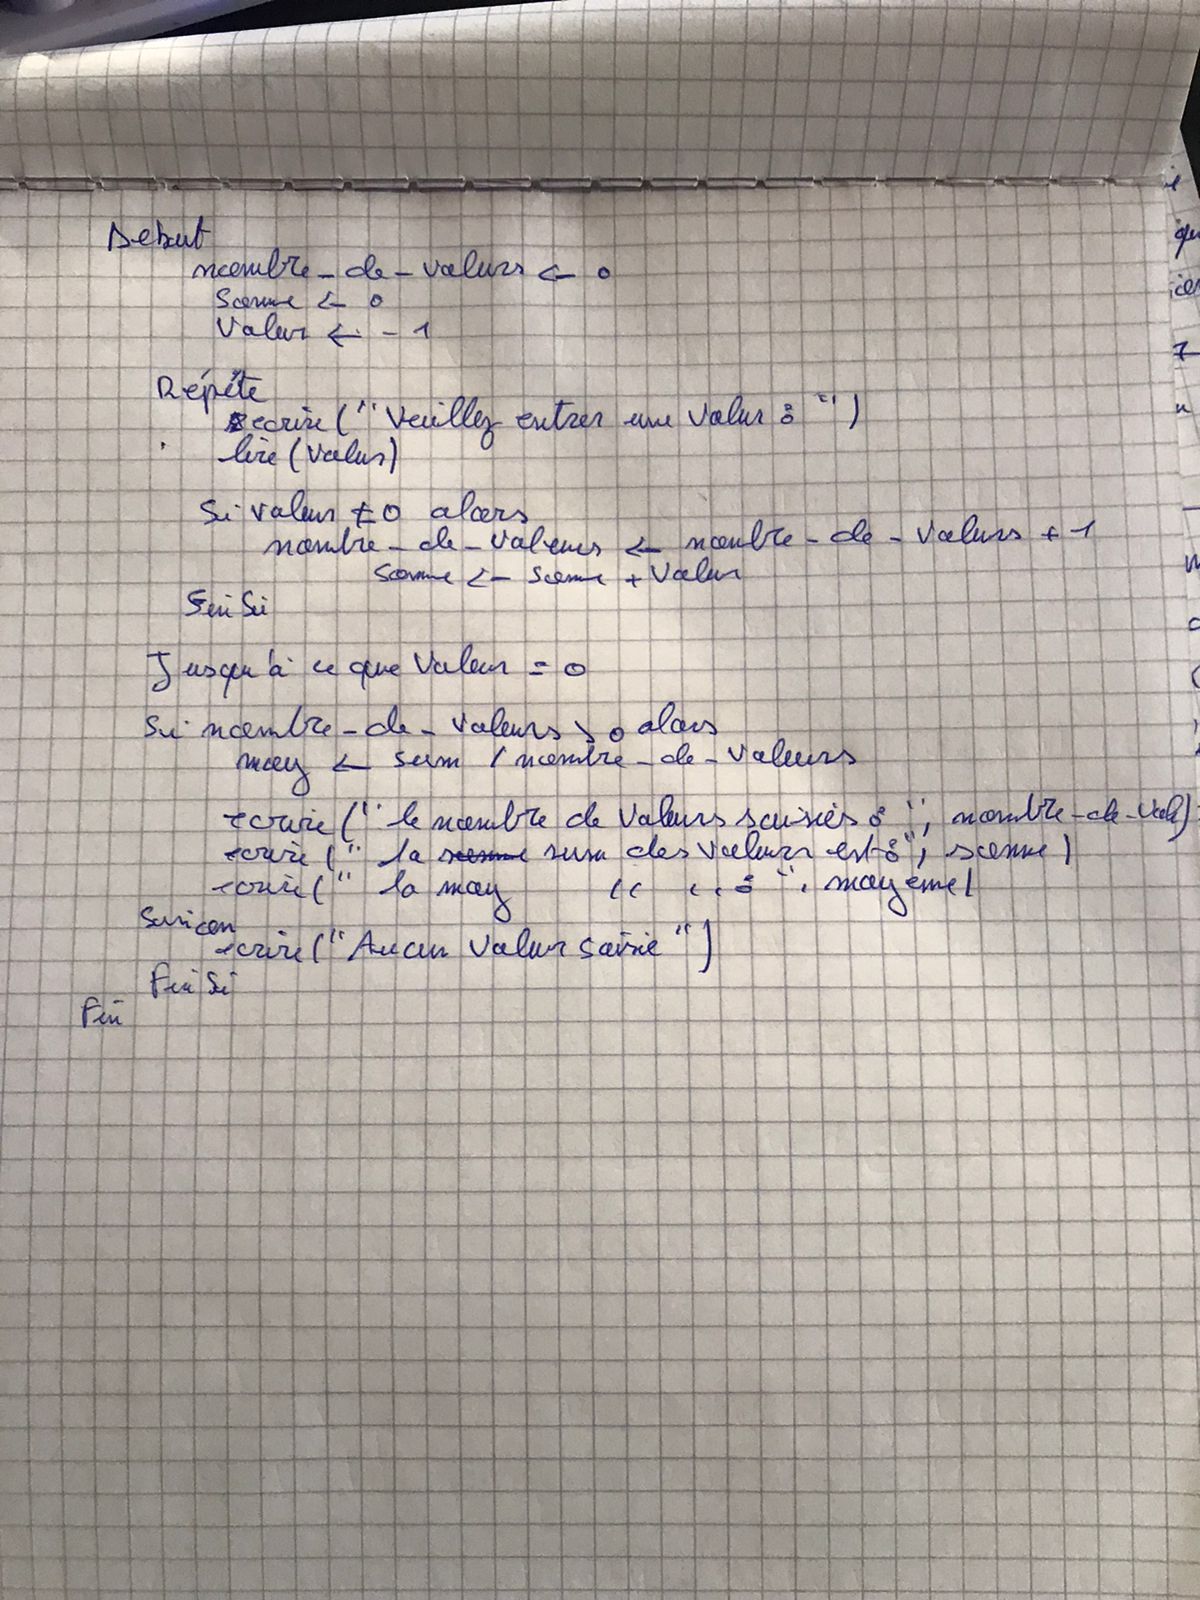 Debut
nombre_de_valeurs ← 0
somme ← 0
Valeur ← -1
Répéte
ecrire("Veuillez entrer une valeur : ")
lire(Valeur)
Si valeur ≠ 0 alors
nombre_de_valeurs ← nombre_de_valeurs + 1
somme ← somme + Valeur
Fin Si
Jusqu'à ce que Valeur = 0
Si nombre_de_valeurs > 0 alors
moy ← som / nombre_de_valeurs
ecrire("le nombre de valeurs saisies : ", nombre_de_val)
ecrire("la som des valeurs est : ", somme)
ecrire("la moy " " : ", moyenne)
Sinon
ecrire("Aucun valeur saisie")
Fin Si
Fin